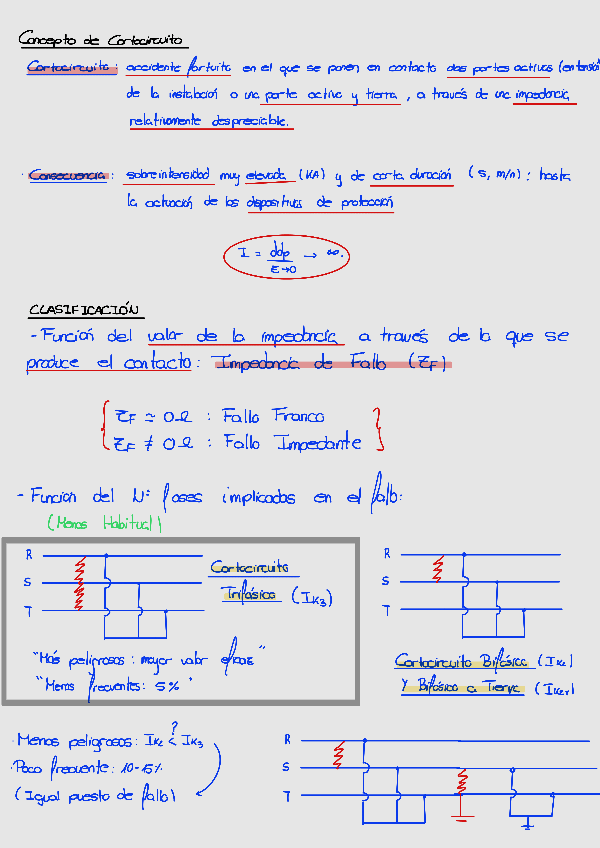 Concepto de Cortocircuito
Cortocircuito: accidente fortuito en el que se ponen en contacto dos partes activas (en tensión
de la instalación o una parte activa y tierra, a través de una impedancia
relativamente despreciable.
· Consecuencia: sobreintensidad muy elevada (kA) y de corta duración (s, m/n): hasta
la actuación de los dispositivos de protección
I = ddp / E→0 → ∞.
CLASIFICACIÓN
- Función del valor de la impedancia a través de la que se
produce el contacto: Impedancia de Fallo (ZF)
ZF ≈ 0Ω : Fallo Franco
ZF ≠ 0Ω : Fallo Impedante
- Función del Nº fases implicadas en el fallo:
(Menos Habitual)
R
S
T
Cortocircuito
Trifásico (IK3)
"Más peligrosos: mayor valor eficaz"
"Menos frecuentes: 5%"
R
S
T
Cortocircuito Bifásico (IK2)
Y Bifásico a Tierra (IK2T)
· Menos peligrosos: IK2 <? IK3
· Poco frecuente: 10-15%
(Igual puesto de fallo)
R
S
T